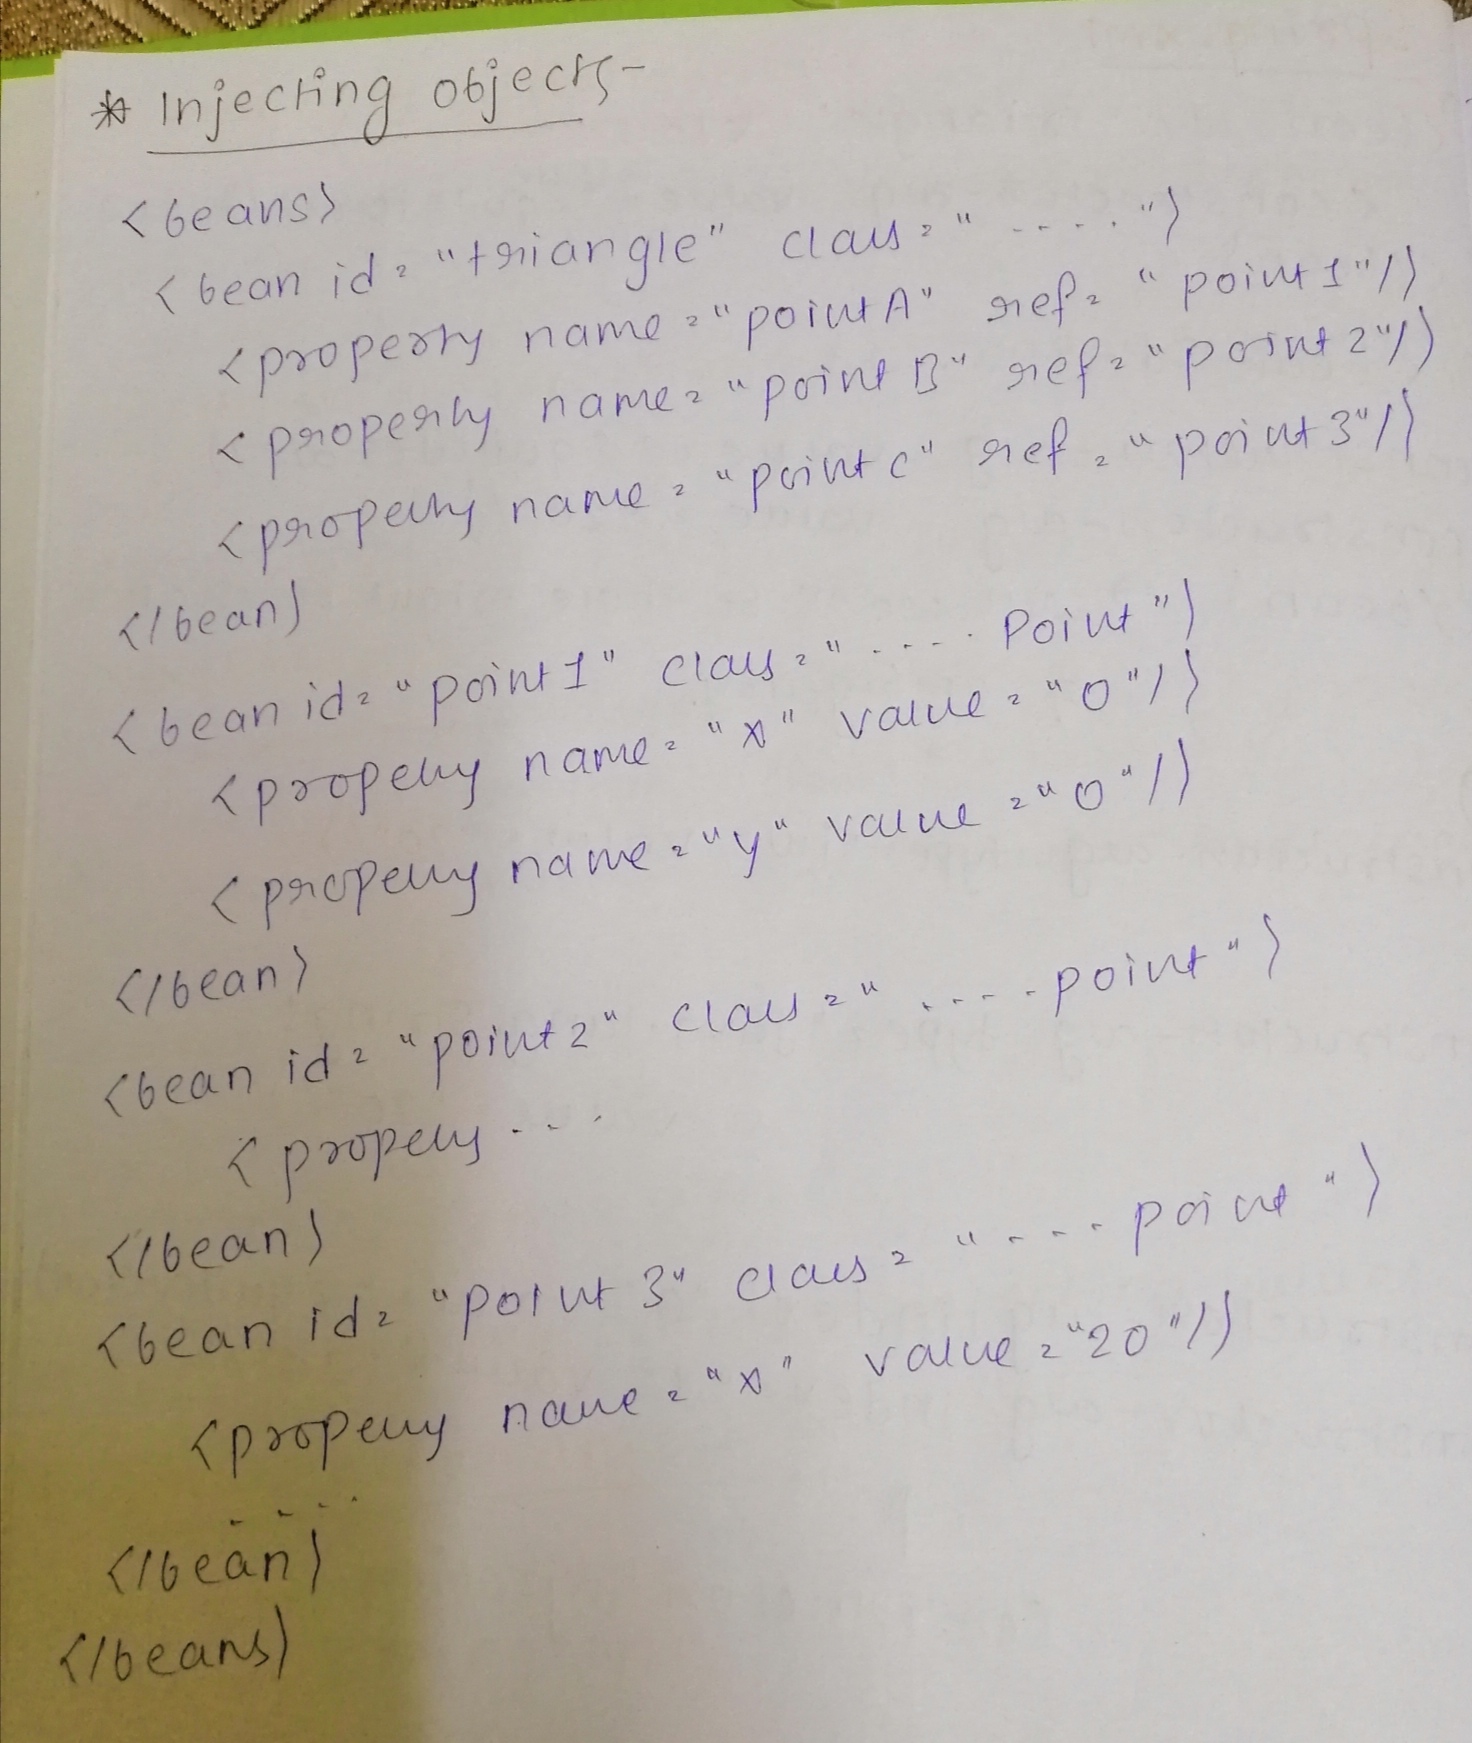 * Injecting objects-
<beans>
<bean id = "triangle" class = " ..... ">
<property name = "pointA" ref = "point1"/>
<property name = "pointB" ref = "point2"/>
<property name = "pointC" ref = "point3"/>
</bean>
<bean id = "point1" class = " .... Point">
<property name = "x" value = "0"/>
<property name = "y" value = "0"/>
</bean>
<bean id = "point2" class = " .... point">
<property ...
</bean>
<bean id = "point3" class = " .... point">
<property name = "x" value = "20"/>
....
</bean>
</beans>